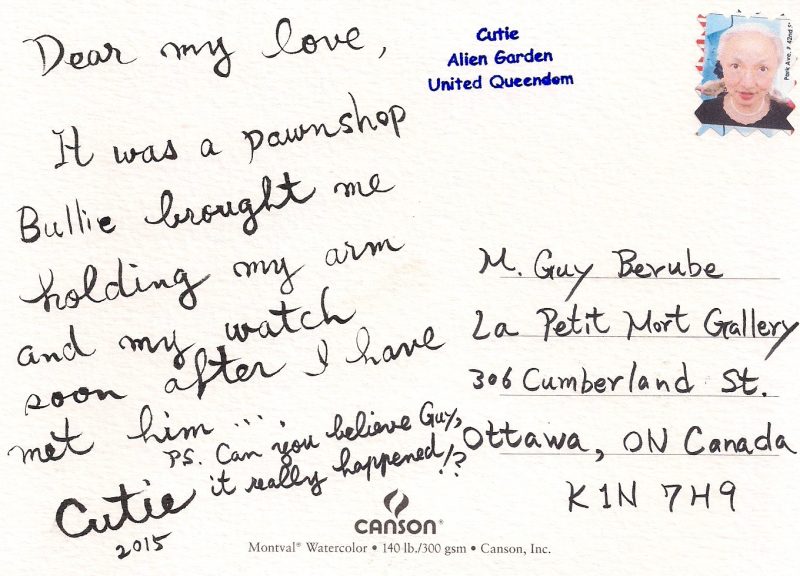 Dear my love,
It was a pawnshop
Bullie brought me
holding my arm
and my watch
soon after I have
met him ....
PS. Can you believe Guy,
it really happened!?
Cutie
2015
Cutie
Alien Garden
United Queendom
Park Ave. & 42nd S
M. Guy Berube
La Petit Mort Gallery
306 Cumberland St.
Ottawa, ON Canada
K1N 7H9
CANSON®
Montval® Watercolor • 140 lb./300 gsm • Canson, Inc.